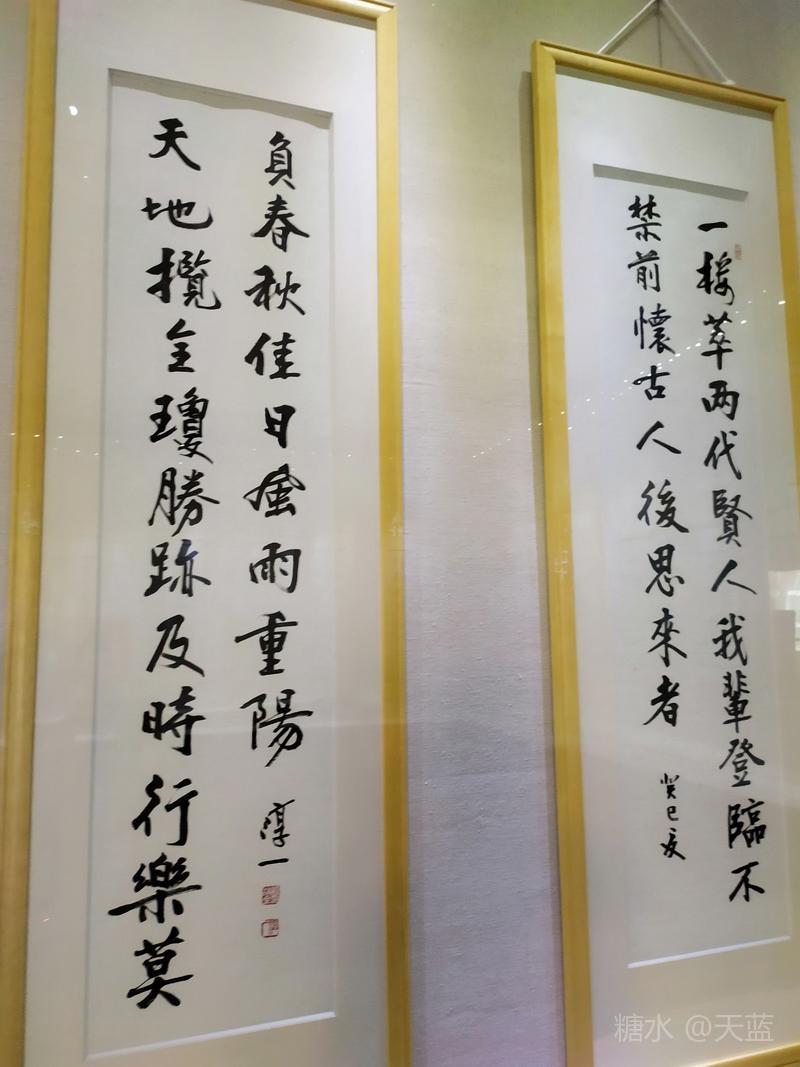 一楼萃两代賢人我輩登臨不
禁前懷古人後思來者
癸巳夏
天地攬全瓊勝跡及時行樂莫
負春秋佳日風雨重陽
淳一
糖水 @天蓝